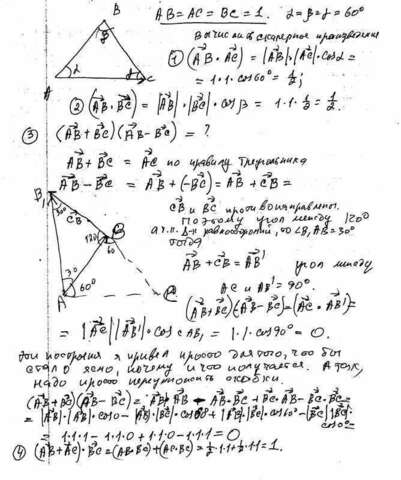 B
AB = AC = BC = 1. α = β = γ = 60°
β
α γ
A C
Вычислить скалярное произведение
① (AB · AC) = |AB|·|AC|·cosα =
= 1·1·cos60° = 1/2;
② (AB · BC) = |AB|·|BC|·cosβ = 1·1·1/2 = 1/2.
③ (AB + BC)(AB - BC) = ?
AB + BC = AC по правилу треугольника
AB - BC = AB + (-BC) = AB + CB =
CB и BC противонаправлены.
Поэтому угол между 120°
а т.к. Δ-к равнобедренный, то ∠B₁AB = 30°
тогда
AB + CB = AB¹ угол между
AC и AB¹ = 90°.
B₁
30°
CB
B
120°
60
30
A 60° C
(AB + BC)(AB - BC) = (AC · AB¹) =
= |AC||AB¹|·cos CAB₁ = 1·1·cos90° = 0.
построения я привел просто для того, что бы
стало ясно, почему и что получается. А так,
надо просто перемножить скобки.
(AB + BC)(AB - BC) = AB·AB - AB·BC + BC·AB - BC·BC =
= |AB|·|AB|·cos0 - |AB|·|BC|·cos60° + |AB|·|BC|·cos60° - |BC||BC|·
cos0° =
= 1·1·1 - 1·1·0 + 1·1·0 - 1·1·1 = 0
④ (AB + AC)·BC = (AB·BC) + (AC·BC) = 1/2·1·1 + 1/2·1·1 = 1.